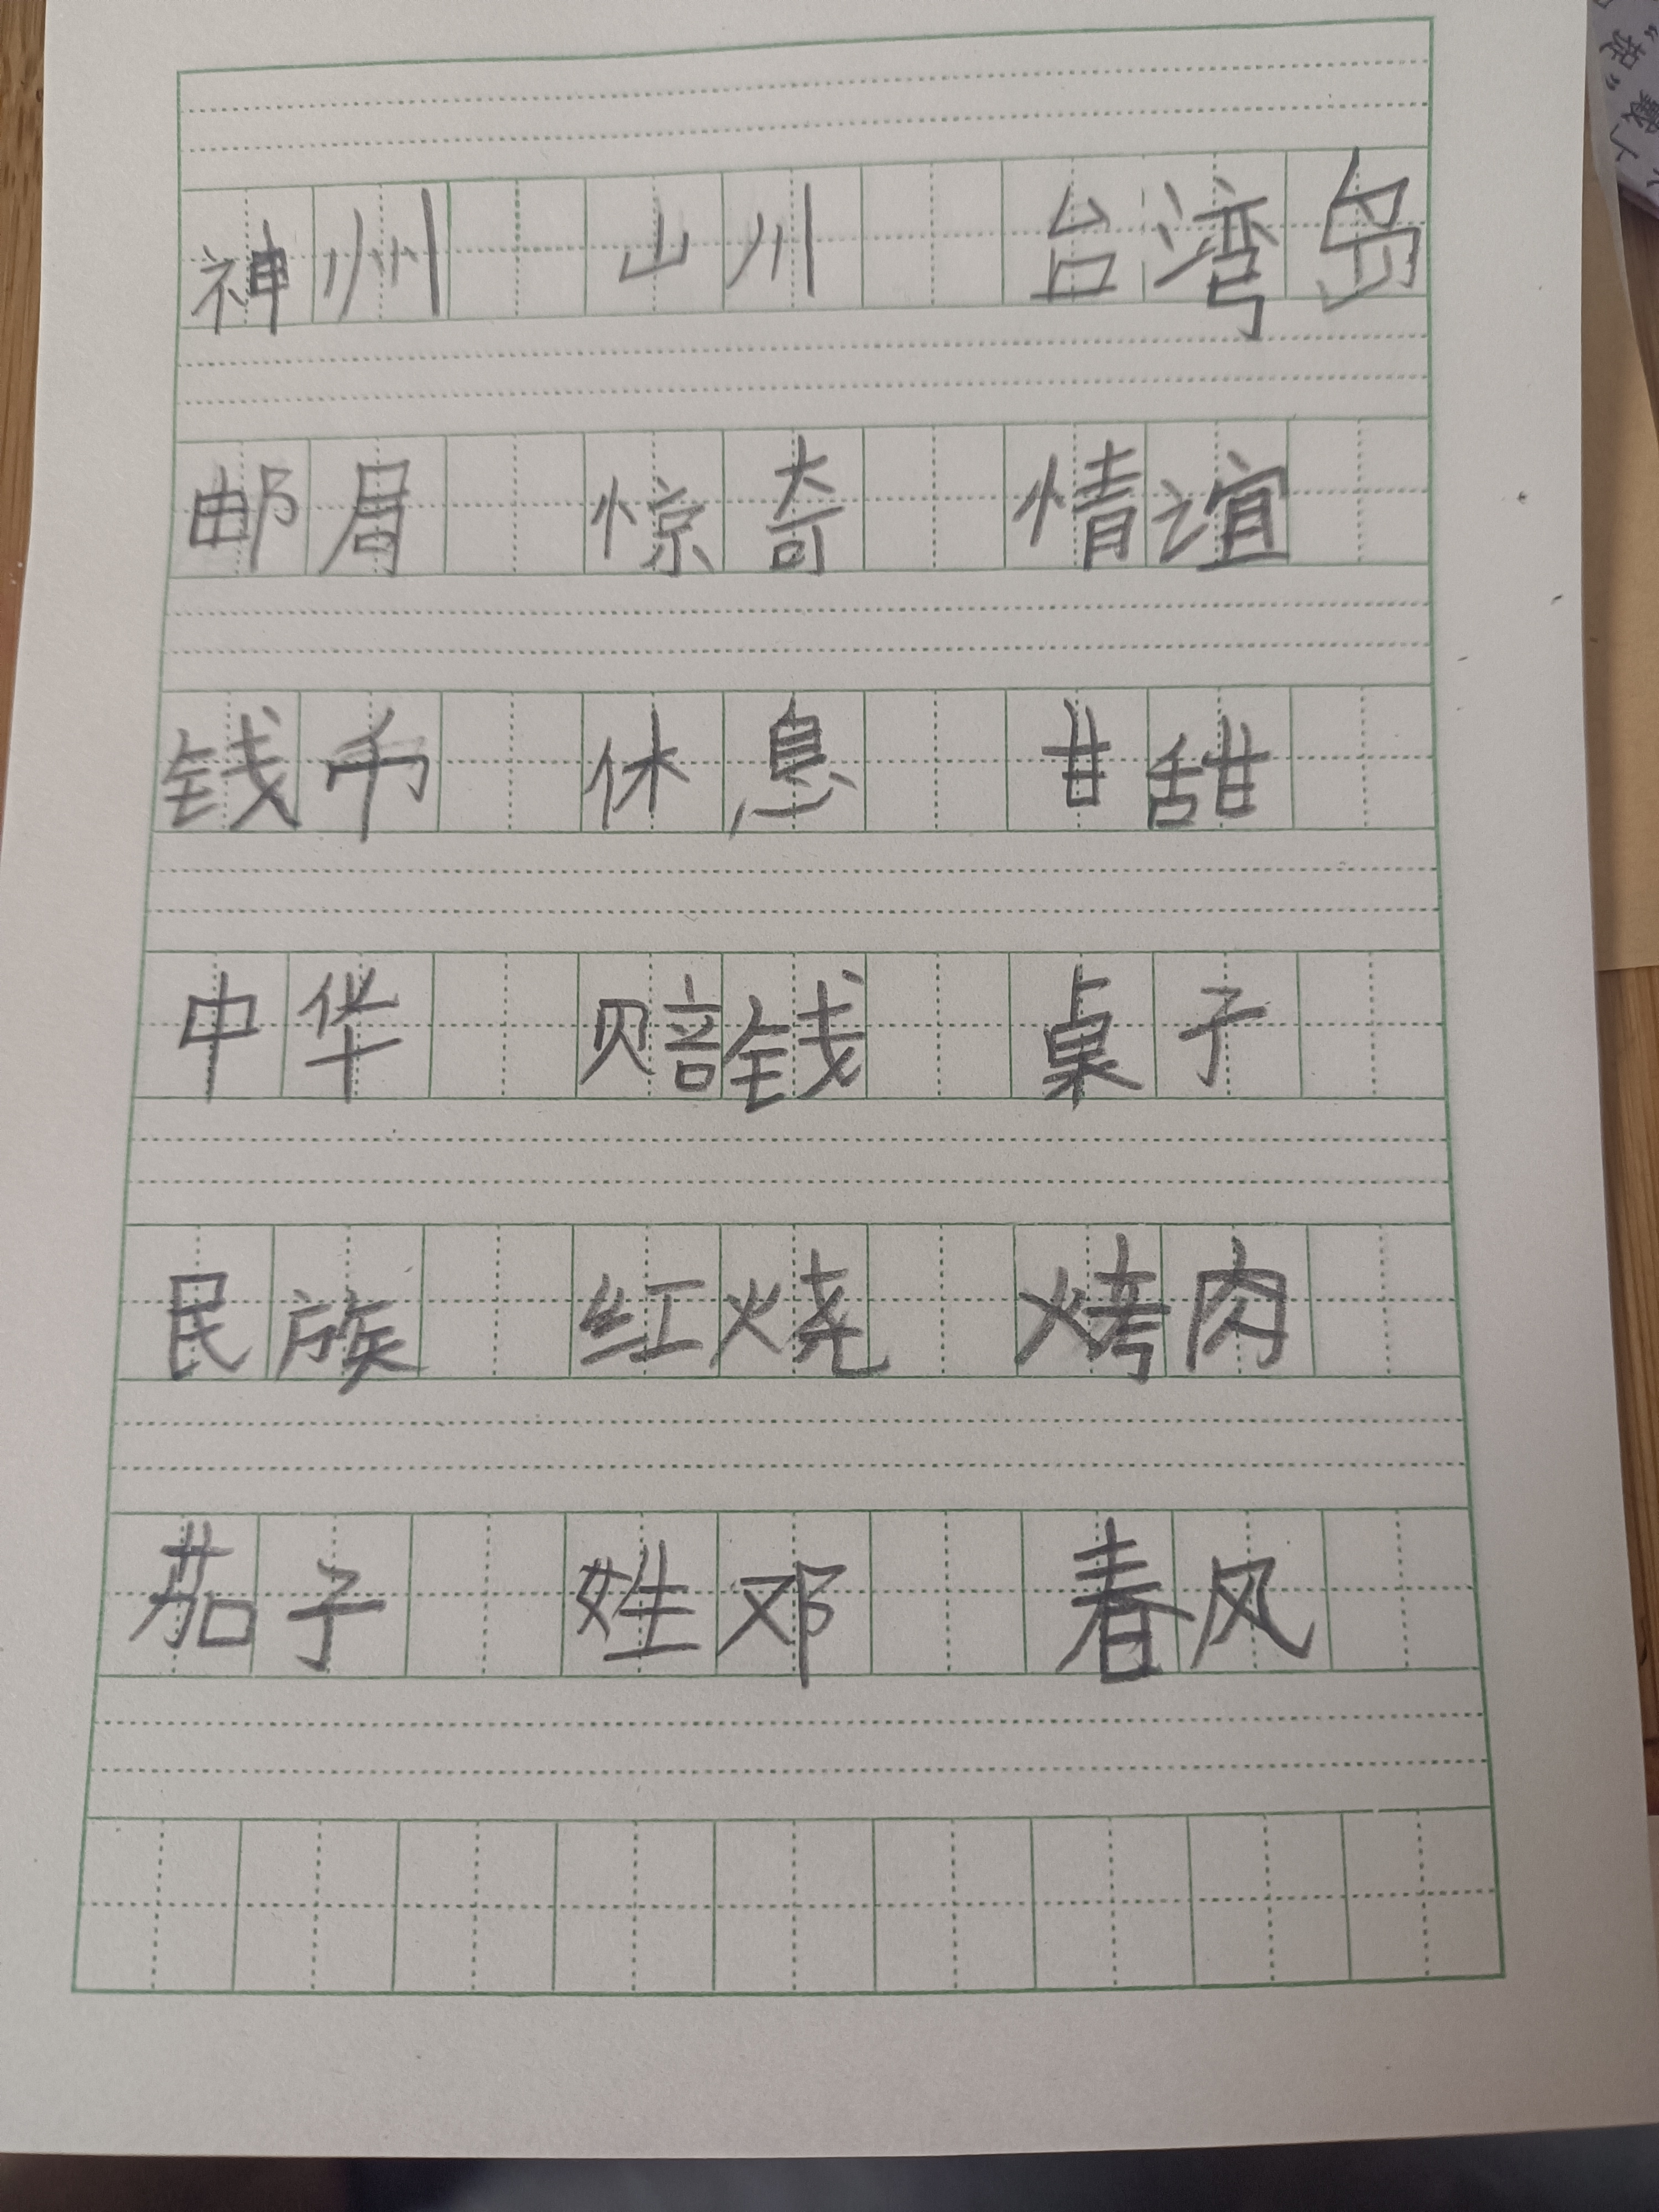 神州 山川 台湾岛
邮局 惊奇 情谊
钱币 休息 甘甜
中华 赔钱 桌子
民族 红烧 烤肉
茄子 姓邓 春风